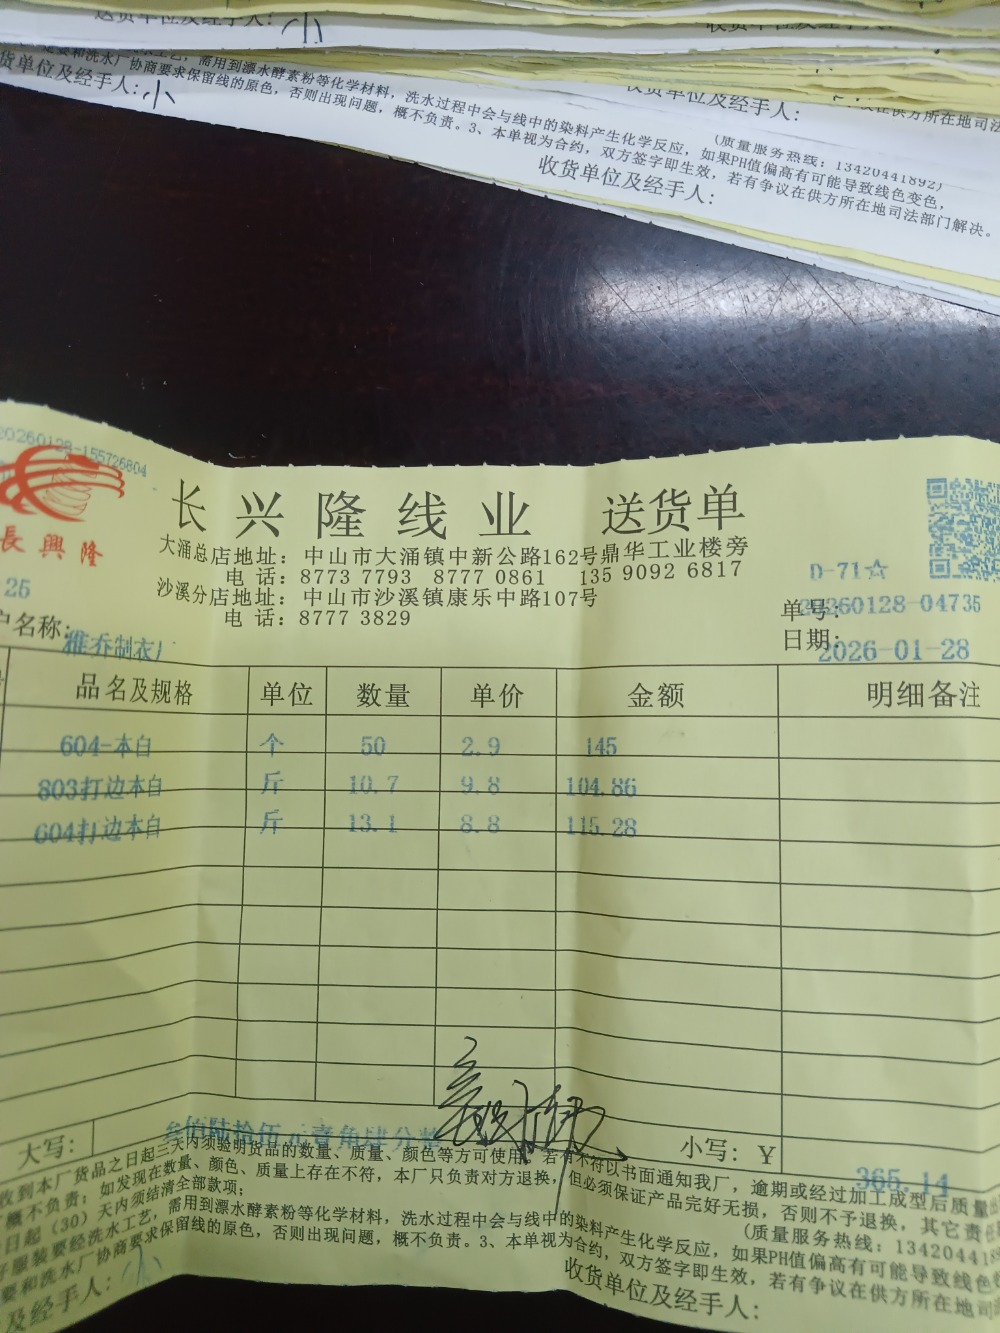 送货单位及经手人：小
收货单位及经手人：
和洗水厂协商要求保留线的原色，否则出现问题，概不负责。3、本单视为合约，双方签字即生效，若有争议在供方所在地司法部门解决。
需用到漂水酵素粉等化学材料，洗水过程中会与线中的染料产生化学反应，如果PH值偏高有可能导致线色变色，
(质量服务热线：13420441892)
货单位及经手人：小
收货单位及经手人：
收货单位及经手人：
20260128-155726804
長興隆
长兴隆线业 送货单
大涌总店地址：中山市大涌镇中新公路162号鼎华工业楼旁
电 话：8773 7793 8777 0861 135 9092 6817
沙溪分店地址：中山市沙溪镇康乐中路107号
电 话：8777 3829
D-71☆
25
单号：20260128-04735
户名称：雅乔制衣厂
日期：2026-01-28
品名及规格 单位 数量 单价 金额 明细备注
604-本白 个 50 2.9 145
803打边本白 斤 10.7 9.8 104.86
604打边本白 斤 13.1 8.8 115.28
大写：叁佰陆拾伍元壹角肆分整 小写：Y 365.14
收到本厂货品之日起三天内须验明货品的数量、质量、颜色等方可使用。若有不符以书面通知我厂，逾期或经过加工成型后质量
概不负责；如发现在数量、颜色、质量上存在不符，本厂只负责对方退换，但必须保证产品完好无损，否则不予退换，其它责任
日起（30）天内须结清全部款项；
(质量服务热线：134204418
服装要经洗水工艺，需用到漂水酵素粉等化学材料，洗水过程中会与线中的染料产生化学反应，如果PH值偏高有可能导致线色
要和洗水厂协商要求保留线的原色，否则出现问题，概不负责。3、本单视为合约，双方签字即生效，若有争议在供方所在地
及经手人：小
收货单位及经手人：